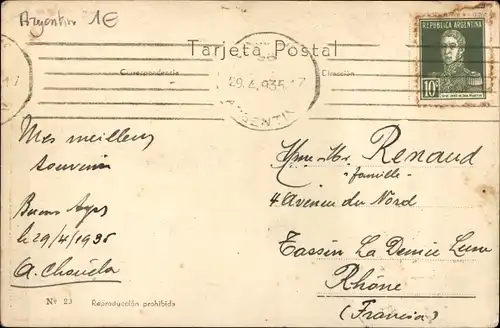 Argentin 1E
REPUBLICA ARGENTINA
10c
Tarjeta Postal
Correspondencia
Dirección
29.4.935 17
ARGENTIN
Mes meilleurs
souvenirs
Buenos Ayres
le 29/4/1935
A.
Renaud
famille
4 Avenue du Nord
Tassin La Demie Lune
Rhône
(Francia)
Nº 20
Reproducción prohibida